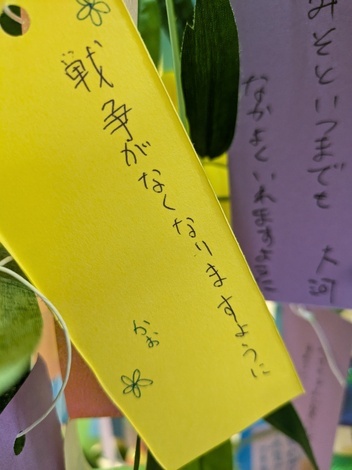 みそといつまでも
なかよくいれますように
大河
戦争がなくなりますように
かお